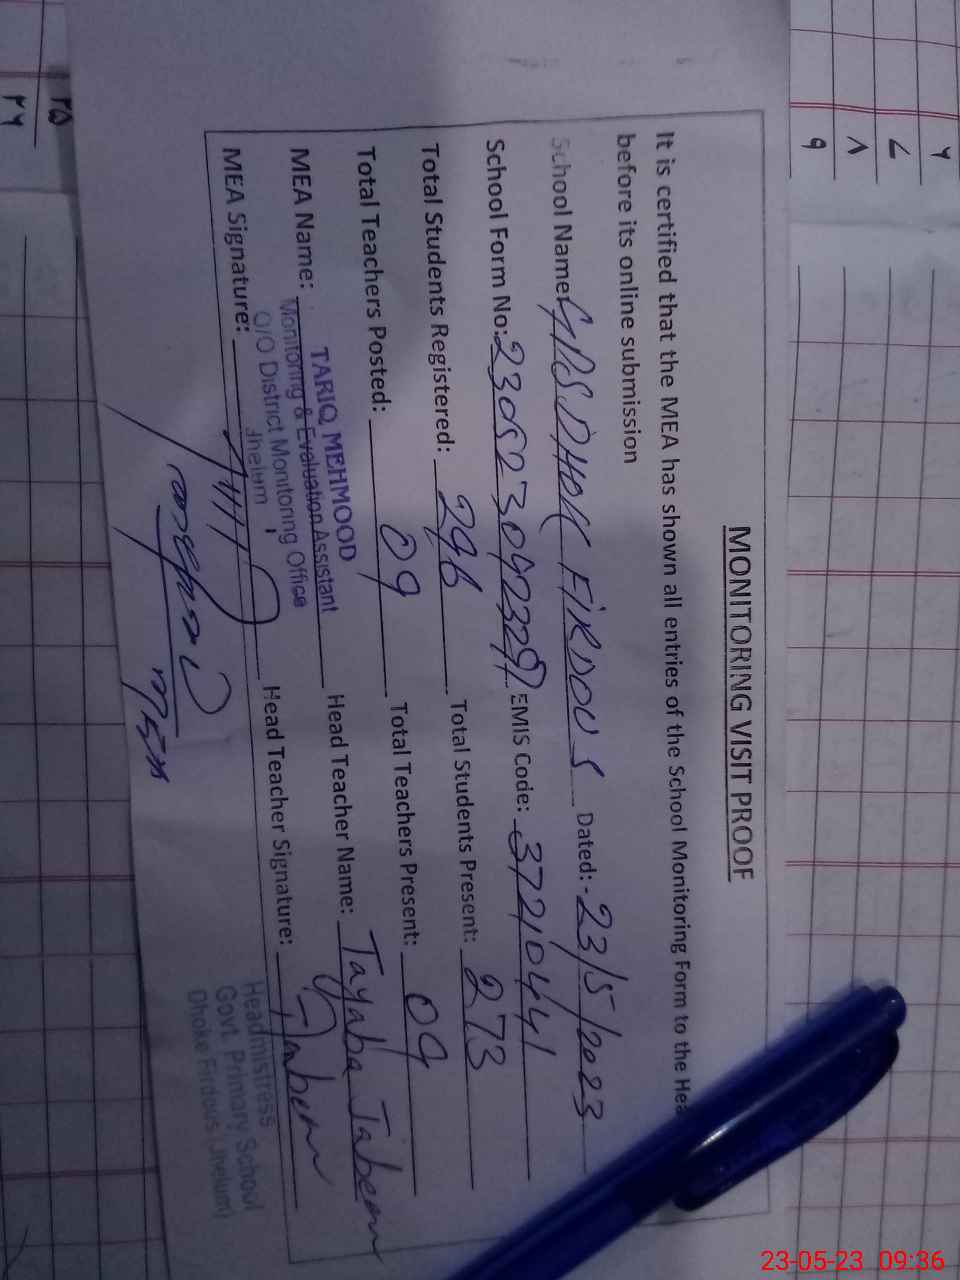 MONITORING VISIT PROOF
It is certified that the MEA has shown all entries of the School Monitoring Form to the Hea
before its online submission
School Name: GPS DHOK FIRDOUS Dated:- 23/5/2023
School Form No: EMIS Code: 37210441
Total Students Registered: 296 Total Students Present: 273
Total Teachers Posted: 09 Total Teachers Present: 09
MEA Name: Head Teacher Name: Tayaba Jabeen
TARIQ MEHMOOD
Monitoring & Evaluation Assistant
O/O District Monitoring Office
Jhelum
MEA Signature: Head Teacher Signature: Jabeen
Headmistress
Govt. Primary School
Dhoke Firdous Jhelum
۲۵
۲۶
۶
۷
۸
۹
23-05-23 09:36